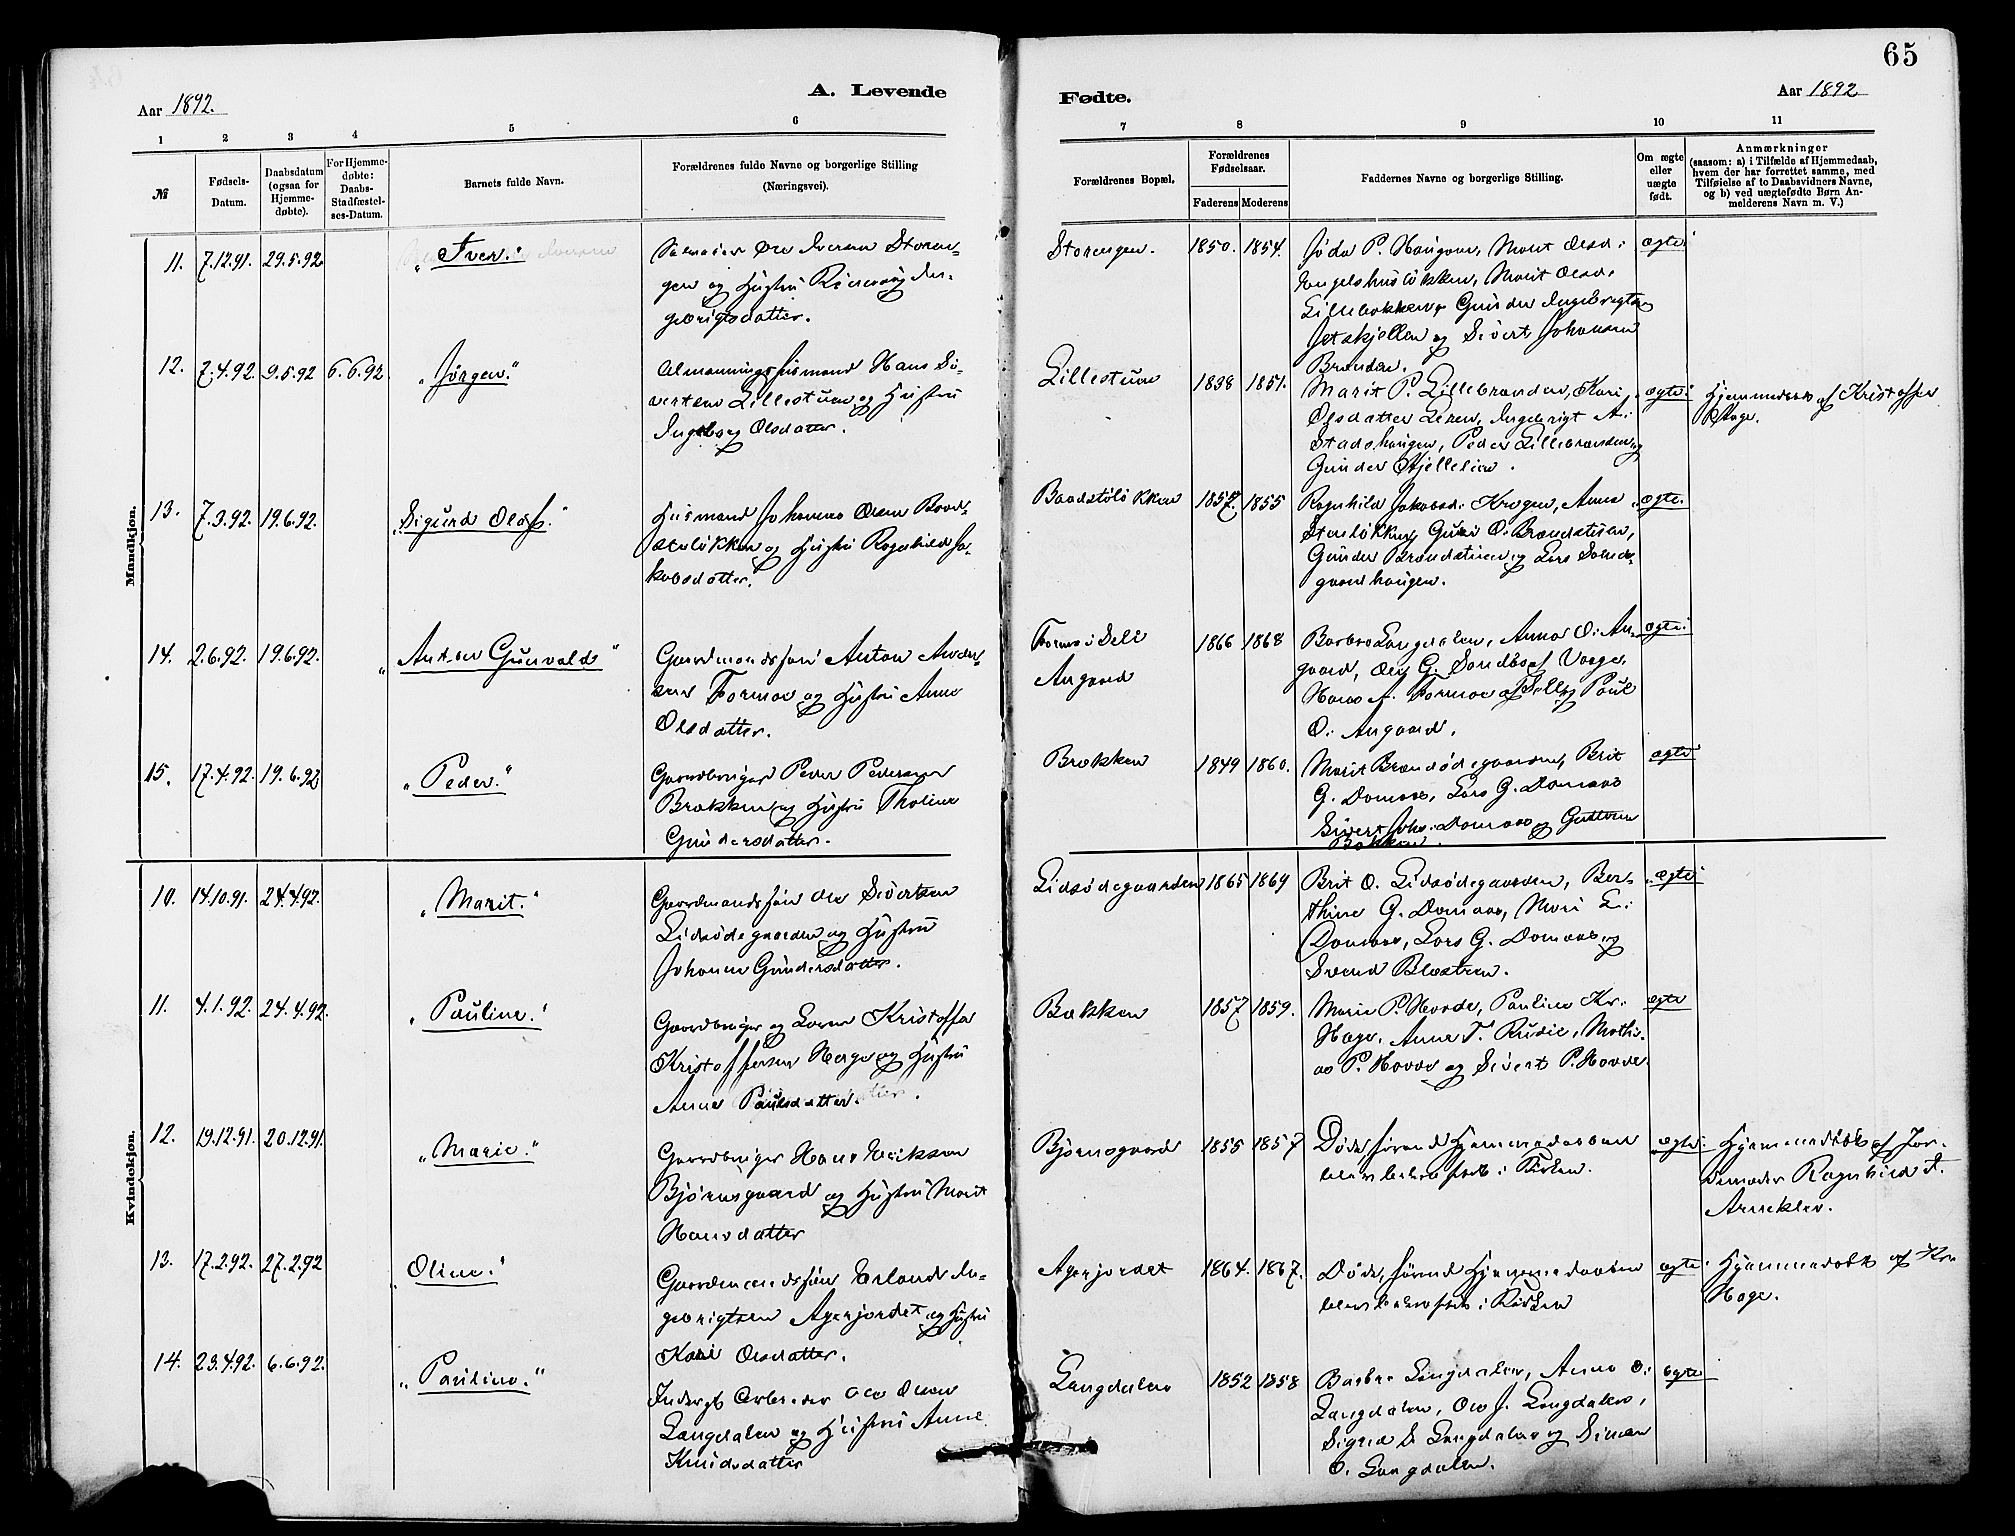 65
Aar 1892.
A. Levende
Fødte.
Aar 1892
1 2 3 4 5 6
7 8 9 10 11
№
Fødsels-
Datum.
Daabsdatum
(ogsaa for
Hjemme-
døbte).
For Hjemme-
døbte:
Daabs-
Stadfæstel-
ses-Datum.
Barnets fulde Navn.
Forældrenes fulde Navne og borgerlige Stilling
(Næringsvei).
Forældrenes Bopæl.
Forældrenes
Fødselsaar.
Faderens Moderens
Faddernes Navne og borgerlige Stilling.
Om ægte
eller
uægte
født.
Anmærkninger
(saasom: a) i Tilfælde af Hjemmedaab,
hvem der har forrettet samme, med
Tilføielse af to Daabsvidners Navne,
og b) ved uægtefødte Børn An-
melderens Navn m. V.)
Mandkjøn.
11. 7.12.91. 29.5.92. „Iver.“
Ole Iversen Storen-
gen og Hustru
Storengen. 1850. 1854.
P. Haugen, Marit Olsd.
Marit Olsd.
og Sivert Johansen
Brenden.
ægte
12. 7.4.92. 9.5.92 6.6.92. „Jörgen.“
Almanningshusmand Hans Si-
vertsen Lillestuen og Hustru
Ingeborg Olsdatter.
Lillestuen 1838 1851.
Marit P. Lillebrænden, Kari
Olsdatter Leren, Ingebrigt A.
Stadshaugen, Peder Lillebrænden og
Gunder Kjellelien.
ægte
Hjemmedøbt af Kristoffer
Hage.
13. 7.3.92. 19.6.92. „Sigurd Olaf.“
Husmand Johannes Olsen Baad-
stølökken og Hustru Ragnhild Ja-
kobsdatter.
Baadstølökken 1857. 1855
Ragnhild Jakobsd. Krogen, Anne
Gunder Brændstuen og Lars Sønde-
gaardhaugen.
ægte.
14. 2.6.92. 19.6.92. „Anders Gunvald“
Gaardmandssøn Anton Ander-
sen Formoe og Hustru Anne
Olsdatter.
Formo i Sell
Angaard
1866 1868
Barbro Langdalen, Anne O. An-
gaard, Ole G. Sandbo af Vaage,
Hans A. Formoe af Sell og Paul
O. Angaard.
ægte
15. 17.4.92. 19.6.92 „Peder.“
Gaardbruger Peder Pedersen
Brækken og Hustru Tholine
Gundersdatter.
Brækken 1849 1860.
Marit Brændødegaarden, Brit
G. Domaas, Lars G. Domaas
Sivert Johs. Domaas og
Bakken.
ægte
Kvindekjøn.
10. 14.10.91. 24.4.92. „Marit.“
Gaardmandssøn Ole Sivertsen
Lidsödegaarden og Hustru
Johanne Gundersdatter.
Lidsödegaarden 1865 1869
Brit O. Lidsödegaarden, Ber-
thine G. Domaas, Mari L.
Domaas, Lars G. Domaas og
Svend Blæstren.
ægte
11. 4.1.92. 24.4.92. „Pauline.“
Gaardbruger og Lærer Kristoffer
Kristoffersen Hage og Hustru
Anne Paulsdatter.
Bakken 1857 1859.
Marie P. Hovde, Pauline Kr.
Hage, Anne T. Rusie, Mathi-
as P. Hovde og Sivert P. Hovde.
ægte
12. 19.12.91. 20.12.91. „Marie.“
Gaardbruger Hans Eriksen
Bjørnsgaard og Hustru Marit
Hansdatter
Bjørnsgaard 1855 1857
Døde førend Hjemmedaaben
blev bekræftet i Kirken.
ægte
Hjemmedøbt af Jor-
demoder Ragnhild T.
Arneklev.
13. 17.2.92. 27.2.92 „Oline.“
Gaardmandssøn Erland In-
gebrigtsen Agerjordet og Hustru
Kari Olsdatter.
Agerjordet 1864. 1867.
Døde, førend Hjemmedaaben
blev bekræftet i Kirken
ægte
Hjemmedøbt af Kr.
Hage.
14. 23.4.92. 6.6.92. „Pauline.“
Inderst Arbeider Ole Olsen
Langdalen og Hustru Anne
Knudsdatter
Langdalen 1852 1858
Barbro Langdalen, Anne O.
Langdalen, Ole J. Langdalen,
Sigrid S. Langdalen og Simen
O. Langdalen.
ægte